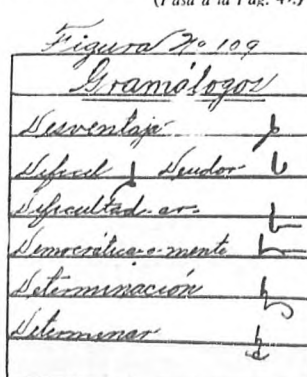 (Pasa a la Pág. 47.)
Figura Nº 109
Gramálogos
Desventaja
Difícil Deudor
Dificultad-ar-
Democrática-o-mente
Determinación
Determinar